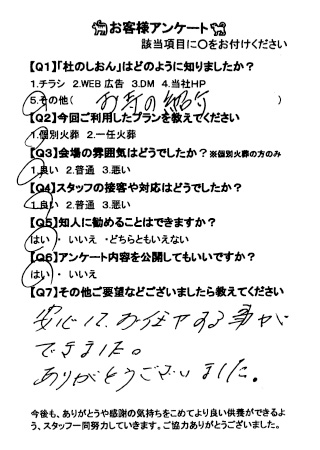 お客様アンケート
該当項目に〇をお付けください
【Q1】「杜のしおん」はどのように知りましたか？
1.チラシ 2.WEB広告 3.DM 4.当社HP
5.その他( お寺の紹介 )
【Q2】今回ご利用したプランを教えてください
1.個別火葬 2.一任火葬
【Q3】会場の雰囲気はどうでしたか？※個別火葬の方のみ
1.良い 2.普通 3.悪い
【Q4】スタッフの接客や対応はどうでしたか？
1.良い 2.普通 3.悪い
【Q5】知人に勧めることはできますか？
はい ・ いいえ ・どちらともいえない
【Q6】アンケート内容を公開してもいいですか？
はい ・ いいえ
【Q7】その他ご要望などございましたら教えてください
安心して、お任せする事が
できました。
ありがとうございました。
今後も、ありがとうや感謝の気持ちをこめてより良い供養ができるよ
う、スタッフ一同努力していきます。ご協力ありがとうございました。